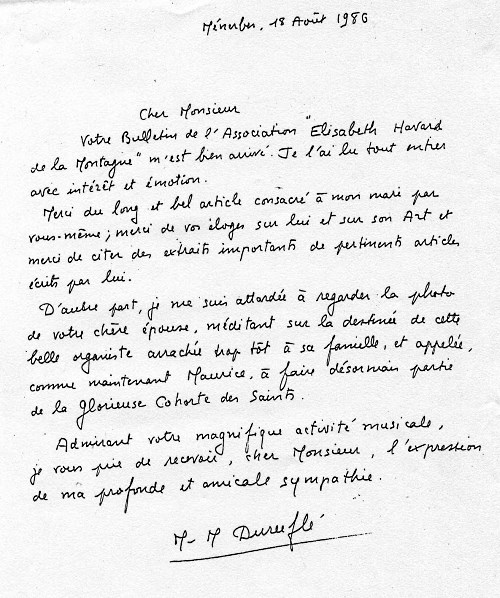 Ménerbes, 18 Août 1986
Cher Monsieur
Votre Bulletin de l'Association "Elisabeth Havard
de la Montagne" m'est bien arrivé. Je l'ai lu tout entier
avec intérêt et émotion.
Merci du long et bel article consacré à mon mari par
vous-même ; merci de vos éloges sur lui et sur son Art et
merci de citer des extraits importants de pertinents articles
écrits par lui.
D'autre part, je me suis attardée à regarder la photo
de votre chère épouse, méditant sur la destinée de cette
belle organiste arrachée trop tôt à sa famille, et appelée,
comme maintenant Maurice, à faire désormais partie
de la Glorieuse Cohorte des Saints.
Admirant votre magnifique activité musicale,
je vous prie de recevoir, cher Monsieur, l'expression
de ma profonde et amicale sympathie.
M-M Duruflé